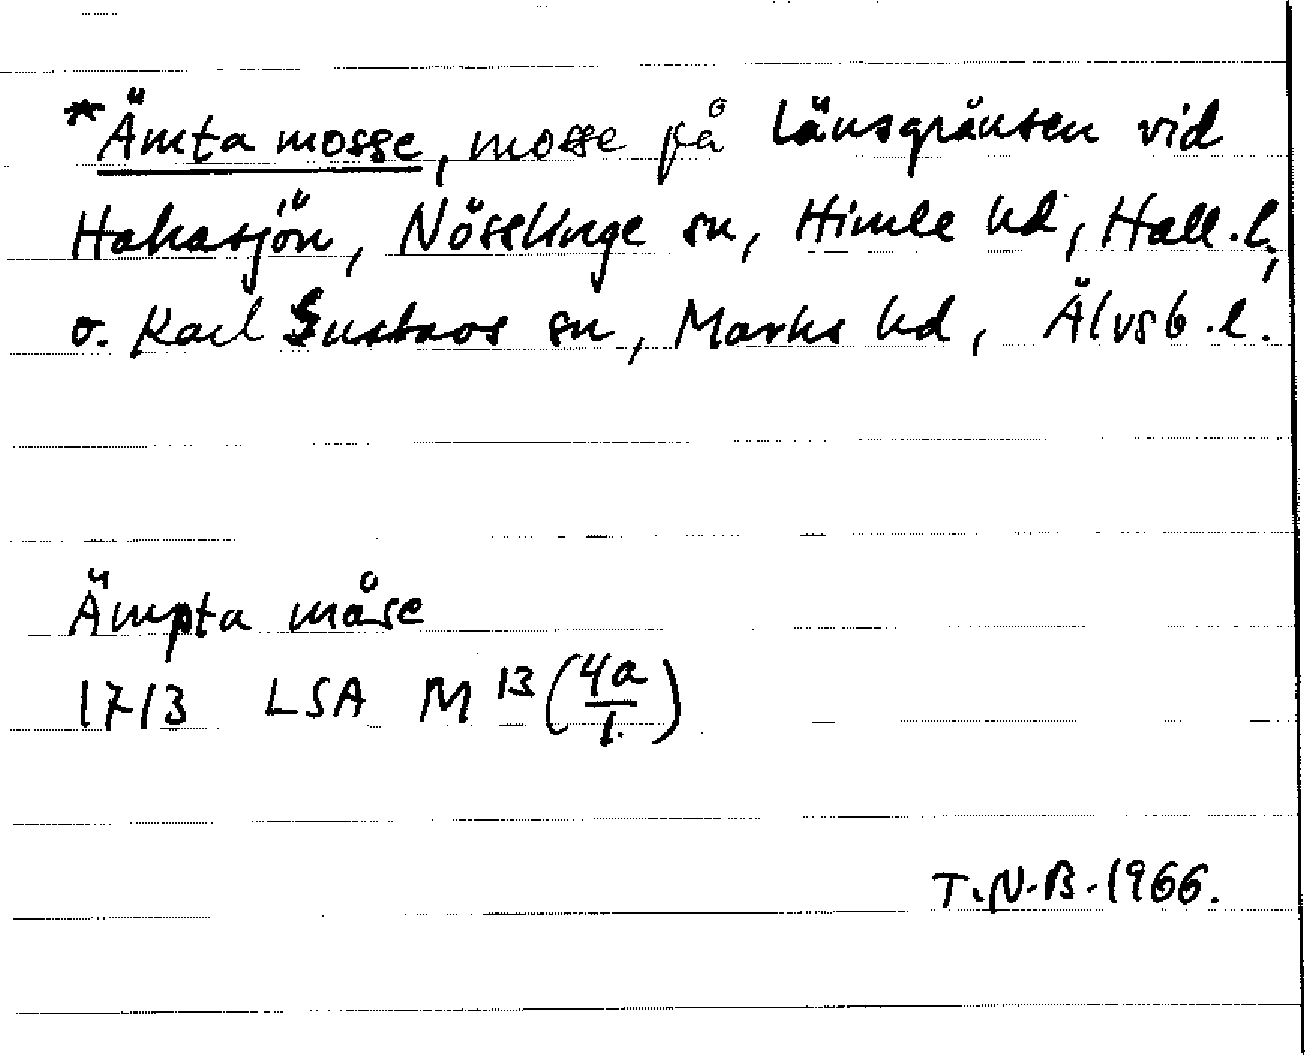 *Ämta mosse, mosse på länsgränsen vid
Hakasjön, Nösslinge sn, Himle hd, Hall.l,
o. Karl Gustavs sn, Marks hd, Älvsb.l.
Ämpta måse
1713 LSA M 13 (4a/1.)
T.N.B. 1966.